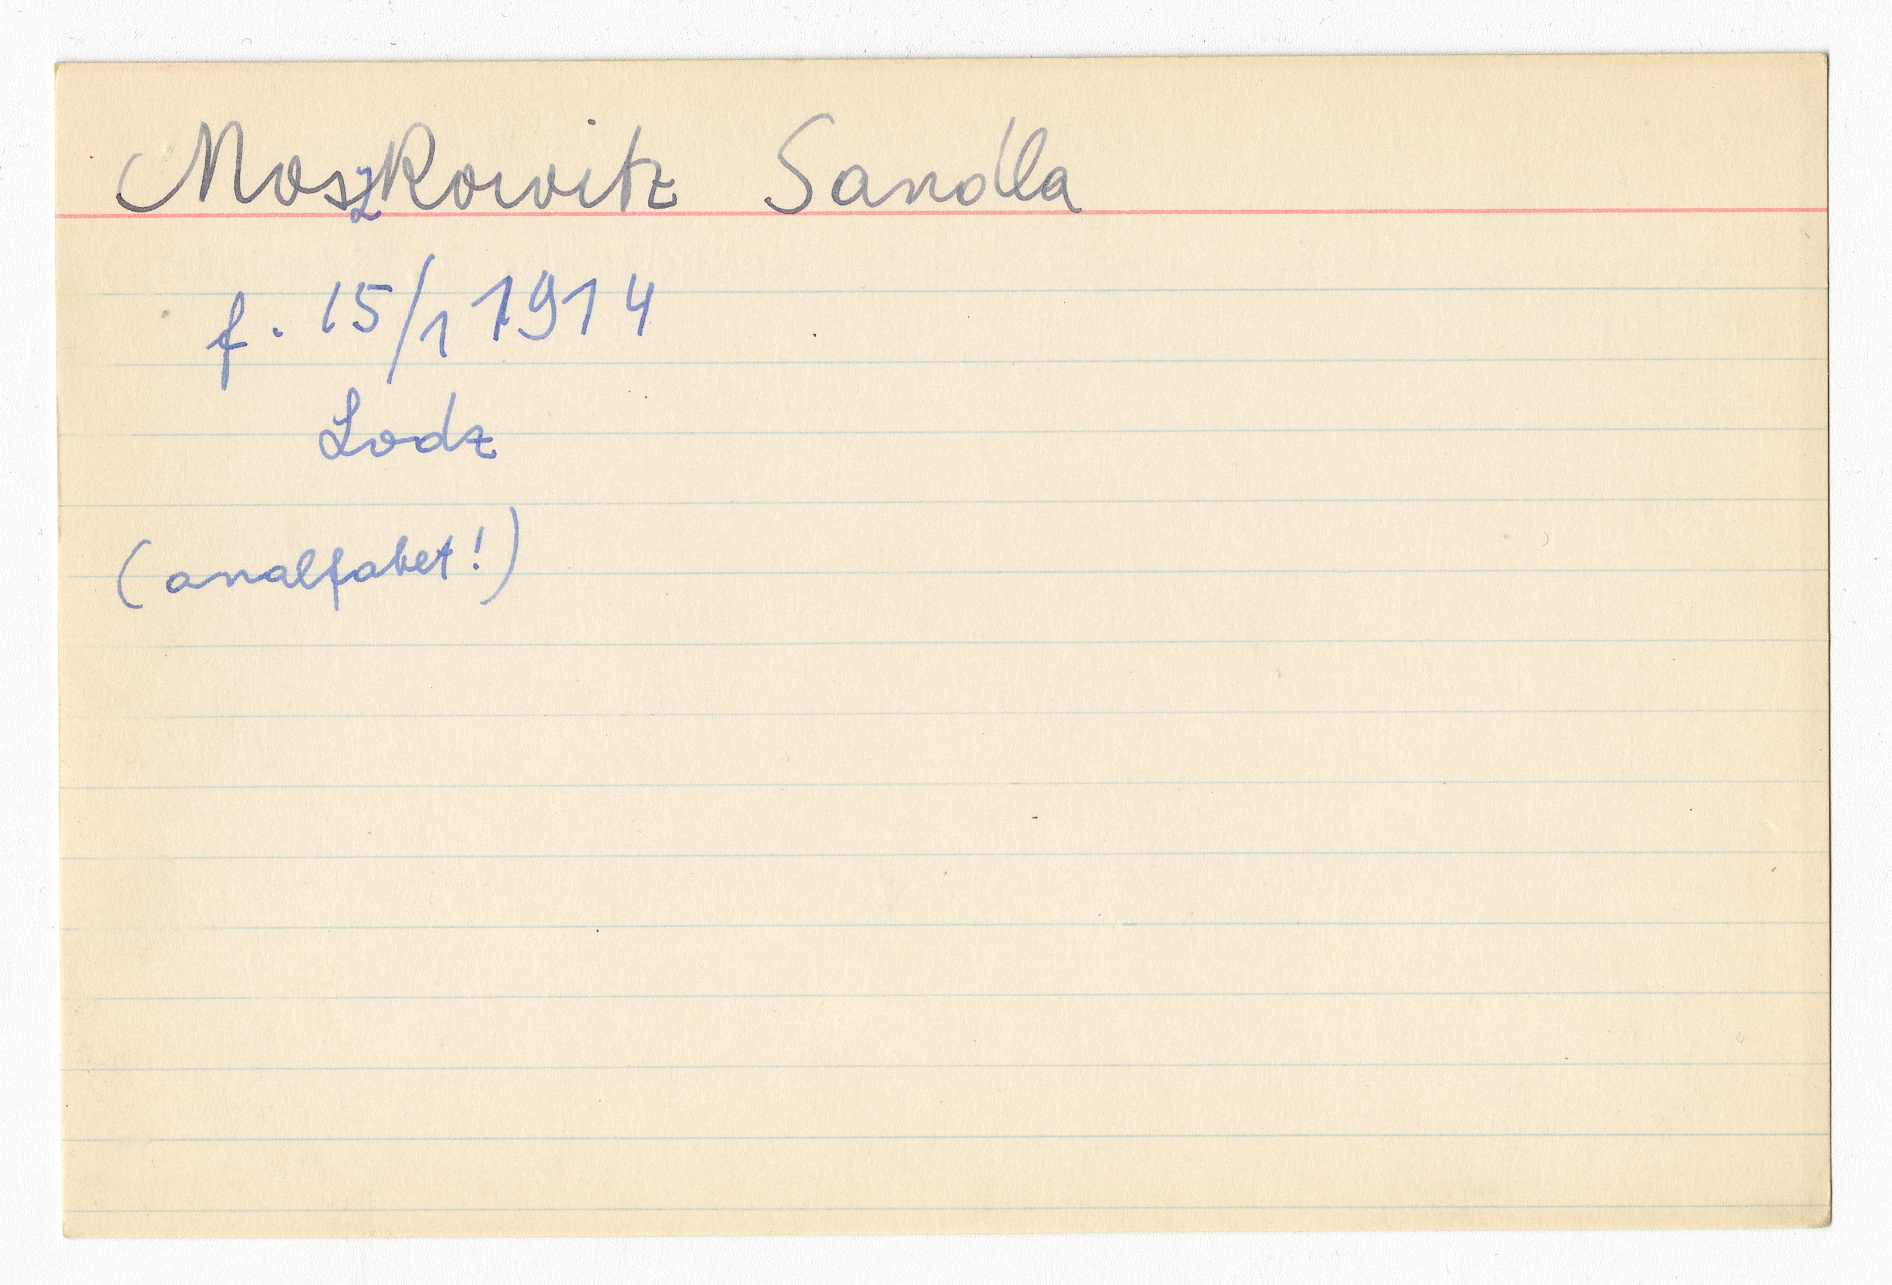 Moszkowitz Sandla
f. 15/1 1914
Lodz
(analfabet!)